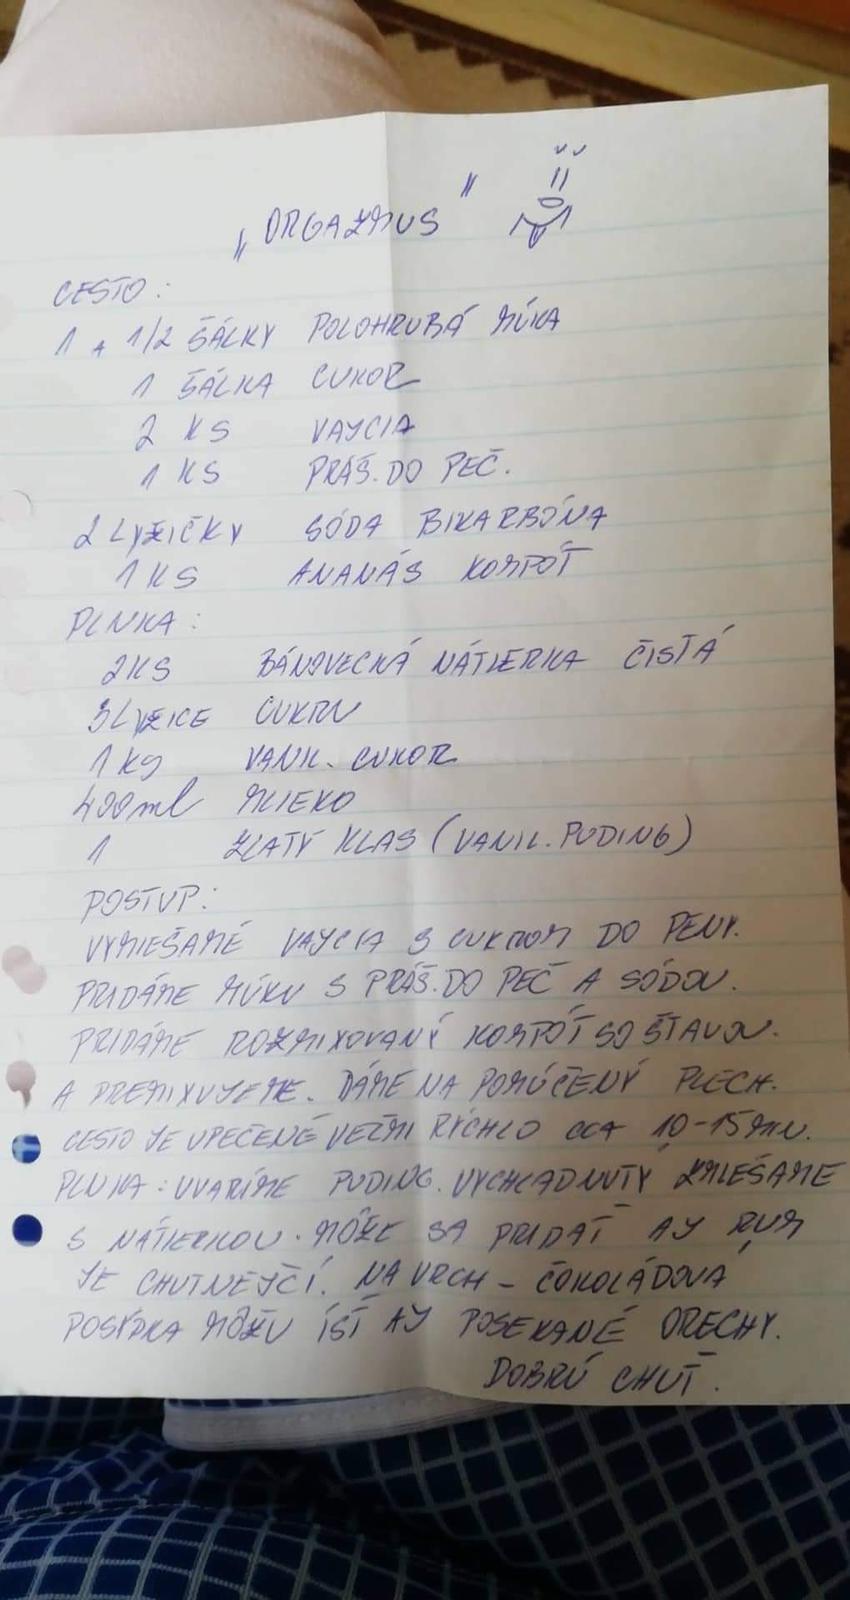 „ORGAZMUS"
CESTO:
1 A 1/2 ŠÁLKY POLOHRUBÁ MÚKA
1 ŠÁLKA CUKOR
2 KS VAJCIA
1 KS PRÁŠ. DO PEČ.
2 LYŽIČKY SÓDA BIKARBÓNA
1 KS ANANÁS KOMPÓT
PLNKA:
2 KS BÁNOVECKÁ NÁTIERKA ČISTÁ
3 LYŽICE CUKRU
1 kg VANIL. CUKOR
400 ml MLIEKO
1 ZLATÝ KLAS (VANIL. PUDING)
POSTUP:
VYMIEŠAME VAJCIA S CUKROM DO PENY.
PRIDÁME MÚKU S PRÁŠ. DO PEČ A SÓDOU.
PRIDÁME ROZMIXOVANÝ KOMPÓT SO ŠŤAVOU.
A PREMIXUJEME. DÁME NA POMÚČENÝ PLECH.
CESTO JE UPEČENÉ VEĽMI RÝCHLO CCA 10-15 MIN.
PLNKA: UVARÍME PUDING. VYCHLADNUTÝ ZMIEŠAME
S NÁTIERKOU. MÔŽE SA PRIDAŤ AJ RUM
JE CHUTNEJČÍ. NA VRCH - ČOKOLÁDOVÁ
POSÝPKA MÔŽU ÍSŤ AJ POSEKANÉ ORECHY.
DOBRÚ CHUŤ.